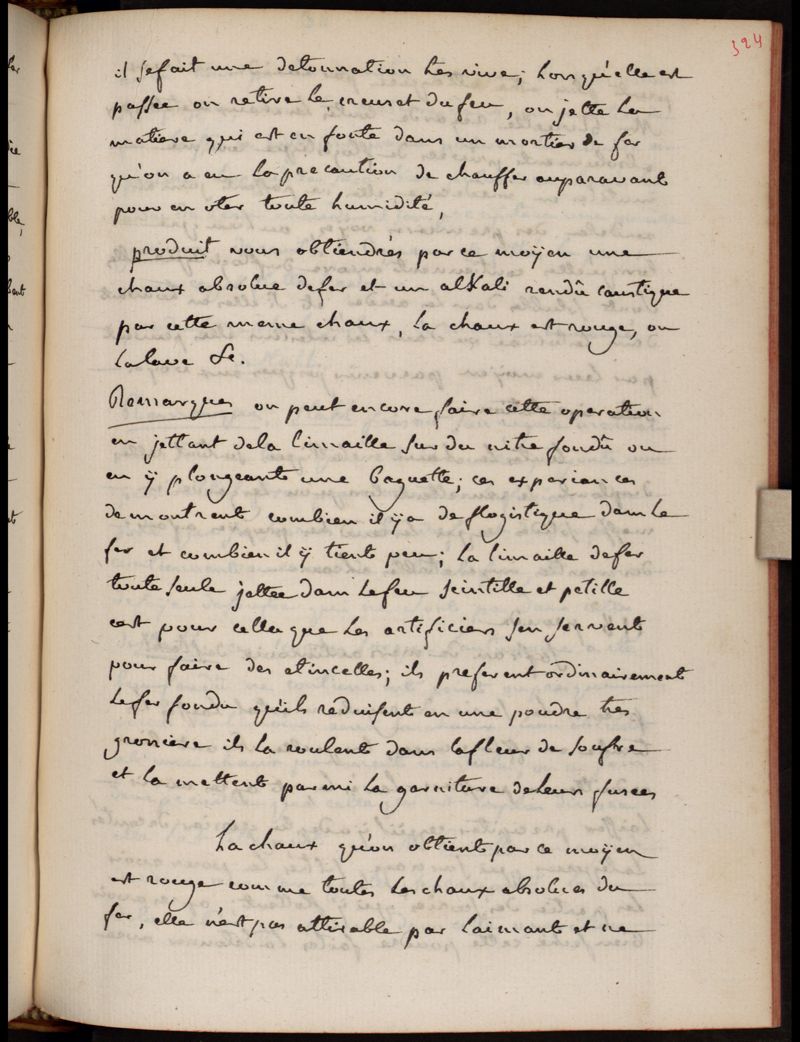 324
il se fait une detonnation tres vive; lorsqu'elle est
passée on retire le creuset du feu, on jette la
matiere qui est en fonte dans un mortier de fer
qu'on a eu la precaution de chauffer auparavant
pour en oter toute humidité,
produit vous obtiendrés par ce moÿen une
chaux absolue de fer et un alKali rendû caustique
par cette meme chaux, la chaux est rouge, on
la lave &c.
Remarques on peut encore faire cette operation
en jettant de la limaille sur du nitre fondû ou
en ÿ plongeant une baguette; ces experiances
demontrent combien il ÿ a de flogistique dans le
fer et combien il ÿ tient peu; la limaille de fer
toute seule jettee dans le feu scintille et petille
cest pour cella que les artificiers sen servent
pour faire des etincelles; ils preferent ordinairement
le fer fondu qu'ils reduisent en une poudre tres
grossiere ils la roulent dans la fleur de soufre
et la mettent parmi la garniture de leurs fusees
La chaux qu'on obtient par ce moÿen
est rouge comme toutes les chaux absolues du
fer, elle n'est pas attirable par laimant et ne